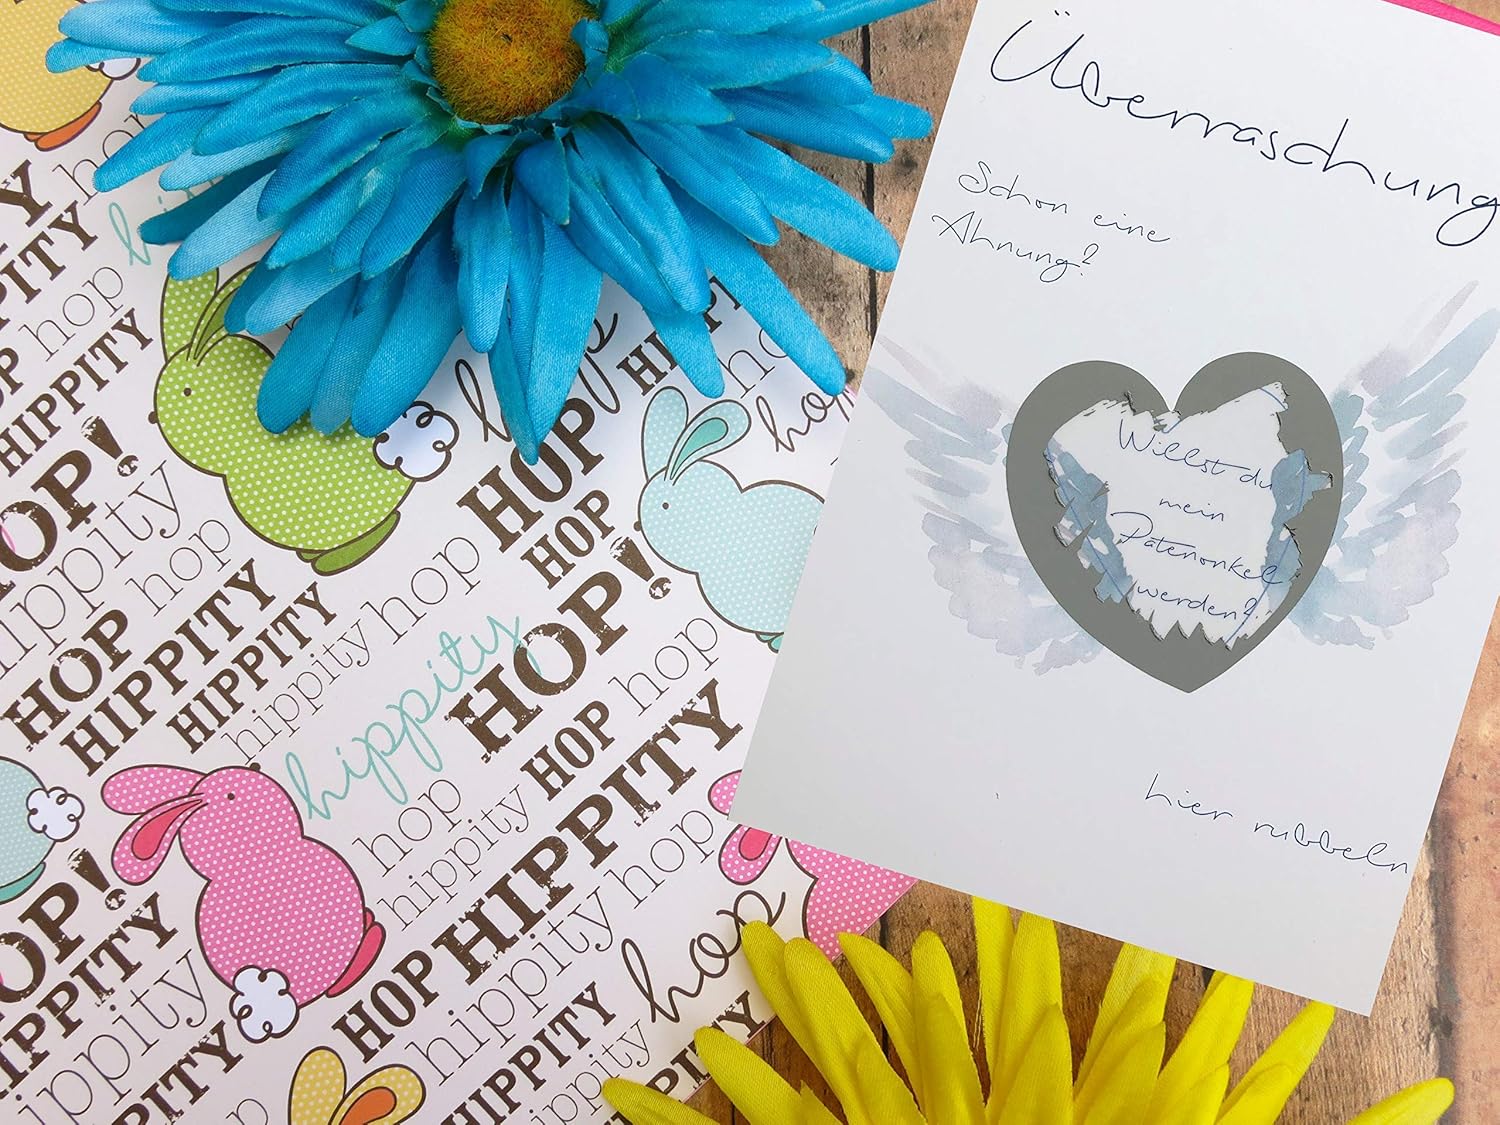 Überraschung
Schon eine
Ahnung?
Willst du
mein
Patenonkel
werden?
hier rubbeln
hop
HIPPITY
hop
HIPPITY
HOP!
hippity
hop
HOP
HIPPITY
HIPPITY
hippity hop
hippity
HOP
hop
HOP
HOP!
hop
HOP
HIPPITY
hop
hippity
HOP HIPPITY
hippity hop
HIPPITY hop
HOP!
HIPPITY
hippity
HIPPITY
hop
HIPPITY